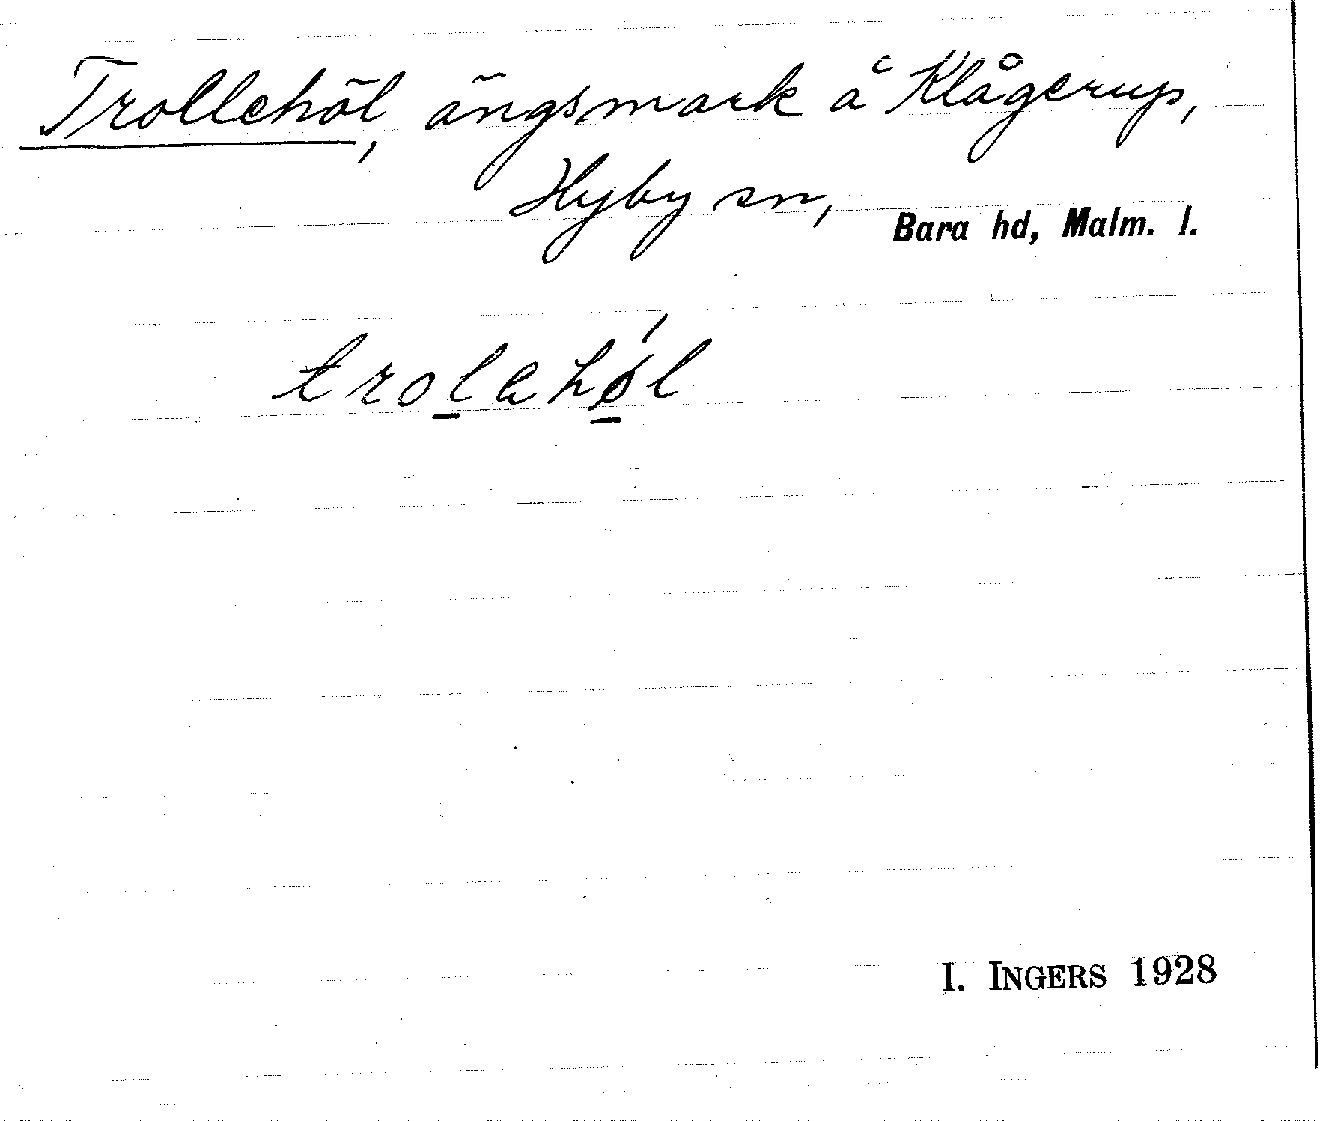 Trollehöl, ängsmark å Klågerup,
Hyby sn, Bara hd, Malm. l.
trolehøl
I. INGERS 1928